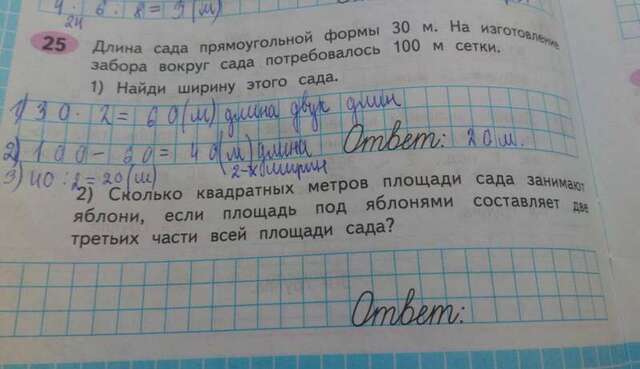 4 · 6 · 8 = 3 (м)
24
25 Длина сада прямоугольной формы 30 м. На изготовление
забора вокруг сада потребовалось 100 м сетки.
1) Найди ширину этого сада.
1) 30 · 2 = 60 (м) длина двух длин
2) 100 - 60 = 40 (м) длина Ответ: 20 м.
2-х ширин
3) 40 : 2 = 20 (м)
2) Сколько квадратных метров площади сада занимают
яблони, если площадь под яблонями составляет две
третьих части всей площади сада?
Ответ: